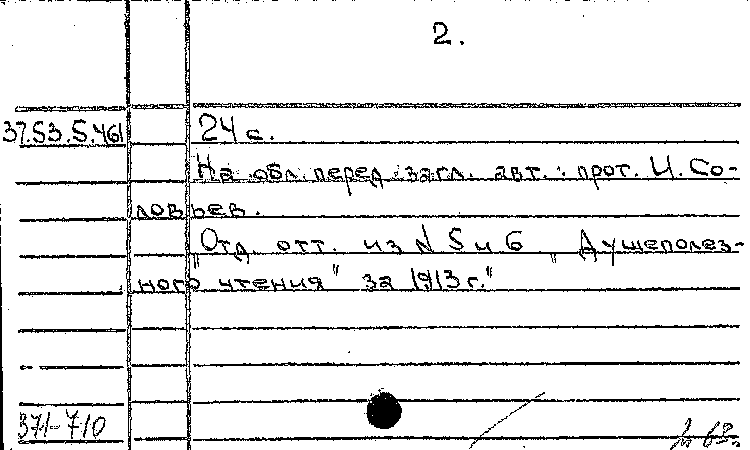 2.
37.53.5.461 24 с.
На обл. перед загл. авт.: прот. И. Со-
ловьев.
"Отд. отт. из N 5 и 6 "Душеполез-
ного чтения" за 1913 г."
371-710